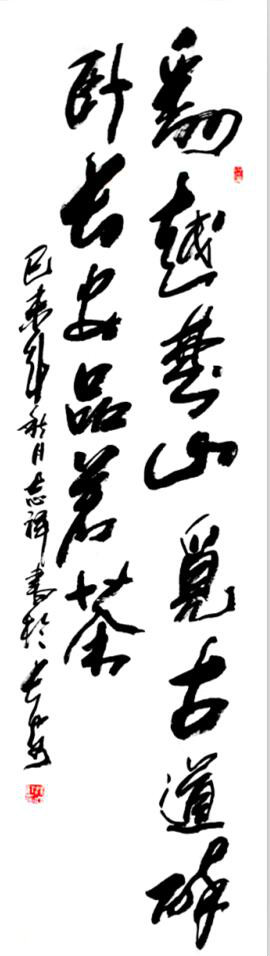 翻越楚山觅古道醉
卧长安品茗茶
己未年秋月志祥書於长安